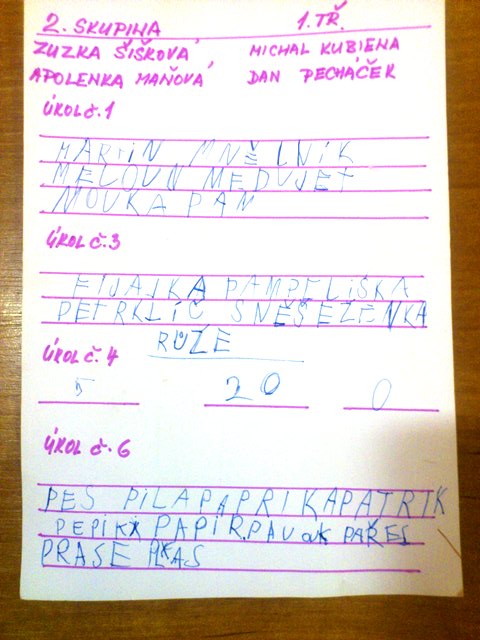 2. SKUPINA 1. TŘ.
ZUZKA ŠIŠKOVÁ MICHAL KUBIENA
APOLENKA MAŇOVÁ DAN PECHÁČEK
ÚKOL Č. 1
MARTiN MNĚLNÍK
MELOUN MEDVJET
MOUKA PAN
ÚKOL Č. 3
FIJALKA PAMPELIŠKA
PETRKLÍČ SNĚŠEŽENKA
RŮŽE
ÚKOL Č. 4
5 20 0
ÚKOL Č. 6
PES PILA PAPRIKA PATRIK
PEPIK PAPÍR PAVOUK PAŘES
PRASE PLKAS